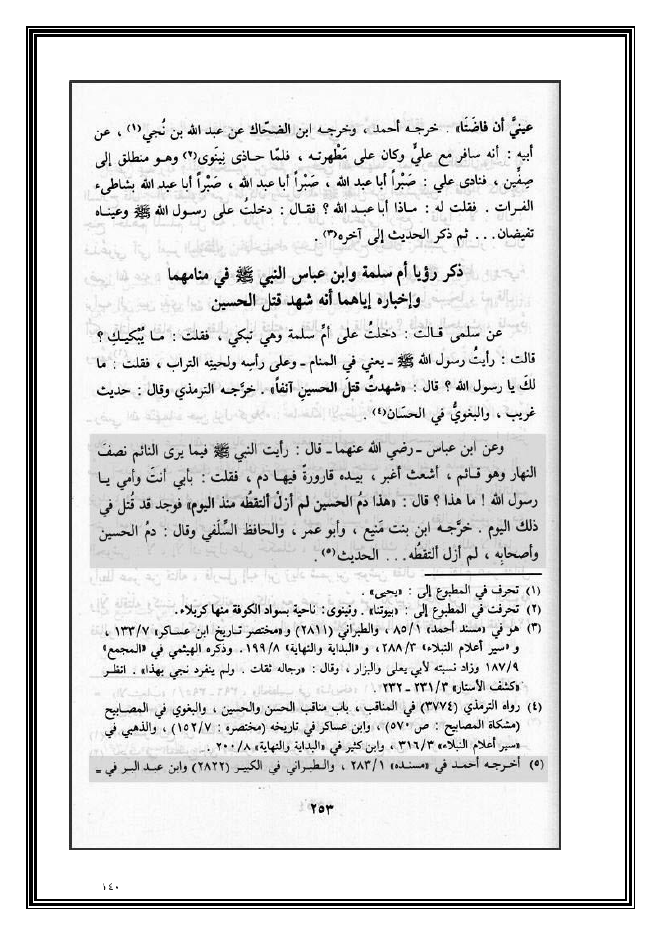 عينيَّ أن فاضَتَا» . خرجـه أحمد ، وخرجـه ابن الضحّاك عن عبد الله بن نُجي(١) ، عن
أبيه : أنه سافر مع عليٍّ وكان على مَطْهرتـه ، فلمّا حـاذى نِينَوى(٢) وهـو منطلق إلى
صِفِّين ، فنادى علي : صَبْراً أبا عبد الله ، صَبْراً أبا عبد الله ، صَبْراً أبا عبد الله بشاطىء
الفرات . فقلت له : مـاذا أبا عبـد الله ؟ فقـال : دخلتُ على رسـول الله ﷺ وعينـاه
تفيضان... ثم ذكر الحديث إلى آخره(٣) .
ذكر رؤيا أم سلمة وابن عباس النبي ﷺ في منامهما
وإخباره إياهما أنه شهد قتل الحسين
عن سلمى قـالت : دخلتُ على أمِّ سلمة وهي تبكي ، فقلت : مـا يُبْكيـكِ ؟
قالت : رأيتُ رسول الله ﷺ ـ يعني في المنام ـ وعلى رأسِه ولحيتِه التراب ، فقلت : ما
لكَ يا رسول الله ؟ قال : «شهدتُ قتلَ الحسينِ آنفاً» . خرَّجـه الترمذي وقال : حديث
غريب ، والبغويُّ في الحسَان(٤) .
وعن ابن عباس ـ رضي الله عنهما ـ قال : رأيت النبي ﷺ فيما يرى النائم نصفَ
النهار وهو قـائم ، أشعثَ أغبر ، بيـده قارورةً فيهـا دم ، فقلت : بأبي أنتَ وأمي يـا
رسول الله ! ما هذا ؟ قال : «هذا دمُ الحسين لم أزلْ ألتقطُه منذ اليوم» فوجد قد قُتل في
ذلك اليوم . خرَّجـه ابن بنت مَنيع ، وأبو عمر ، والحافظ السِّلَفي وقال : دمُ الحسين
وأصحابِه ، لم أزل ألتقطُه... الحديث(٥) .
(١) تحرف في المطبوع إلى : «يحيى» .
(٢) تحرفت في المطبوع إلى : «بيوتنا» . ونينوى: ناحية بسواد الكوفة منها كربلاء.
(٣) هو في «مسند أحمد» ٨٥/١ ، والطبراني (٢٨١١) و«مختصر تـاريخ ابن عسـاكر» ١٣٣/٧ ،
و «سير أعلام النبلاء» ٢٨٨/٣ ، و «البداية والنهاية» ١٩٩/٨ . وذكره الهيثمي في «المجمع»
١٨٧/٩ وزاد نسبته لأبي يعلى والبزار ، وقال : «رجاله ثقات . ولم ينفرد نجي بهذا» . انظـر
«كشف الأستار» ٢٣١/٣ ـ ٢٣٢ .
(٤) رواه الترمذي (٣٧٧٤) في المناقب ، باب مناقب الحسن والحسين ، والبغوي في المصـابيح
(مشكاة المصابيح : ص ٥٧٠) ، وابن عساكر في تاريخه (مختصره : ١٥٢/٧) ، والذهبي في
«سير أعلام النبلاء» ٣١٦/٣ ، وابن كثير في «البداية والنهاية» ٢٠٠/٨ .
(٥) أخـرجـه أحمـد في «مسنـده» ٢٨٣/١ ، والـطبـراني في الكبيـر (٢٨٢٢) وابن عبـد البـر في ـ
٢٥٣
١٤٠